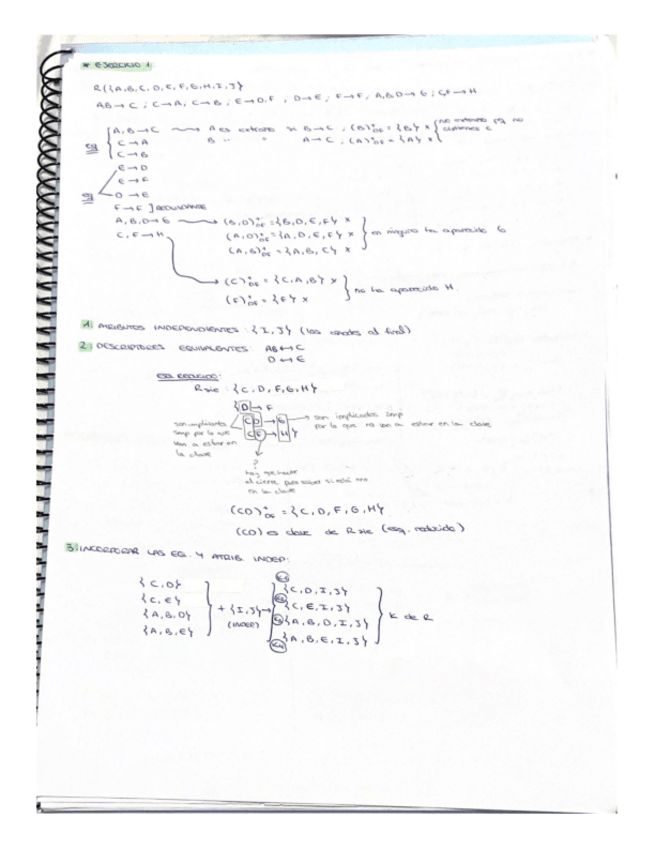 * EJERCICIO 1
R({A,B,C,D,E,F,G,H,I,J})
AB→C ; C→A, C→B ; E→D,F , D→E ; F→F, A,B,D→G ; C,F→H
eq { A,B→C → A es extraño si B→C , (B)⁺DF = {B} x { no extraño pq no contiene C
C→A B " " A→C ; (A)⁺DF = {A} x
C→B
E→D
E→F
eq D→E
F→F ] REDUNDANTE
A,B,D→G → (B,D)⁺DF = {B,D,E,F} x
(A,D)⁺DF = {A,D,E,F} x } en ninguno ha aparecido G
(A,B)⁺DF = {A,B,C} x
C,F→H → (C)⁺DF = {C,A,B} x
(F)⁺DF = {F} x } no ha aparecido H.
1. ATRIBUTOS INDEPENDIENTES : {I,J} (los añades al final)
2. DESCRIPTORES EQUIVALENTES: AB↔C
D↔E
ESQ. REDUCIDO:
Rsie : {C,D,F,G,H}
{D→F
CD→G
CF→H}
son implicantes
siemp por lo que
van a estar en
la clave
son implicados siemp
por lo que no van a estar en la clave
?
hay que hacer
el cierre para saber si está o no
en la clave
(CD)⁺DF = {C,D,F,G,H}
(CD) es clave de R sie (esq. reducido)
3. INCORPORAR LAS EQ. Y ATRIB. INDEP:
{C,D}
{C,E}
{A,B,D}
{A,B,E}
+ {I,J} →
(INDEP)
K1 {C,D,I,J}
K2 {C,E,I,J}
K3 {A,B,D,I,J}
K4 {A,B,E,I,J}
K de R